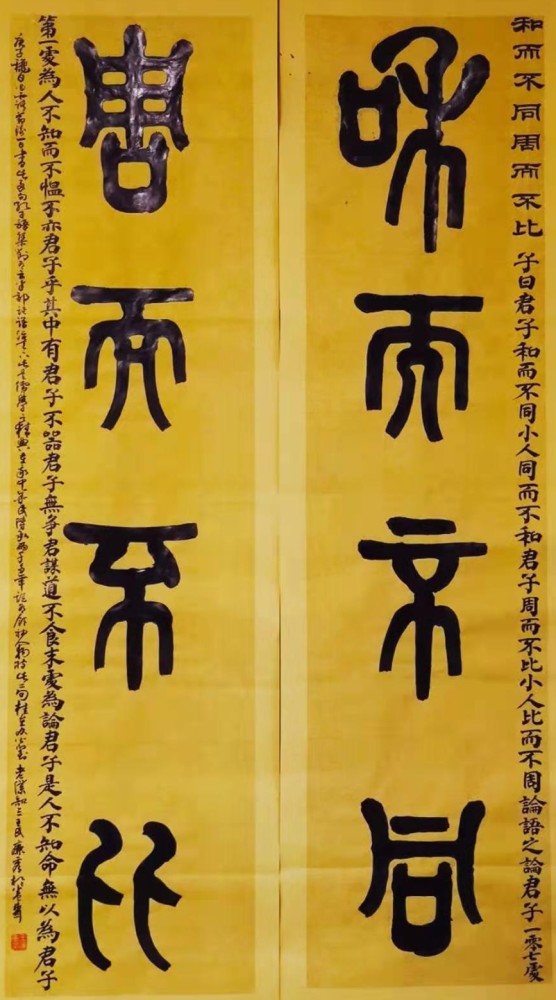 和而不同周而不比
子曰君子和而不同小人同而不和君子周而不比小人比而不周論語之論君子一零七處
和而不同
周而不比
第一處為人不知而不慍不亦君子乎其中有君子不器君子無爭君謀道不食末處為論君子是人不知命無以為君子